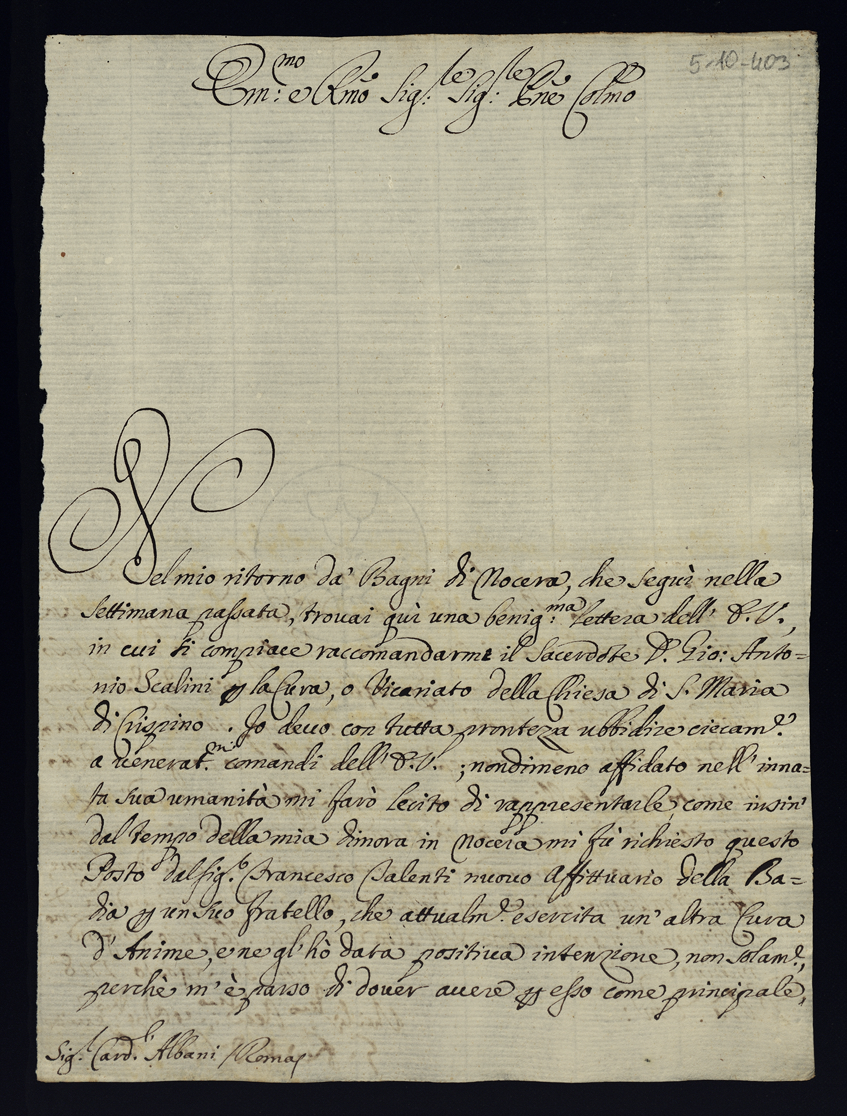 5-10-403
Em:mo e Rmo Sig:re Sig:re Pne Colmo
Nel mio ritorno da' Bagni di Nocera, che seguì nella
settimana passata, trovai quì una benig:ma lettera dell' E.V.,
in cui si compiace raccomandarmi il Sacerdote D. Gio: Anto=
nio Scalini p la Cura, o Vicariato della Chiesa di S. Maria
di Crispino. Io devo con tutta prontezza ubbidire ciecam.e
a venerat.mi comandi dell' E.V.; nondimeno affidato nell' inna=
ta sua umanità mi farò lecito di rappresentarle, come insin'
dal tempo della mia dimora in Nocera mi fù richiesto questo
Posto dal Sig.r Francesco Valenti nuovo Affittuario della Ba=
dia p un suo fratello, che attualm.e esercita un' altra Cura
d' Anime, e ne gl' hò data positiva intenzione, non solam.e,
perchè m' è parso di dover avere p esso come principale,
Sig.r Card.l Albani /Roma/